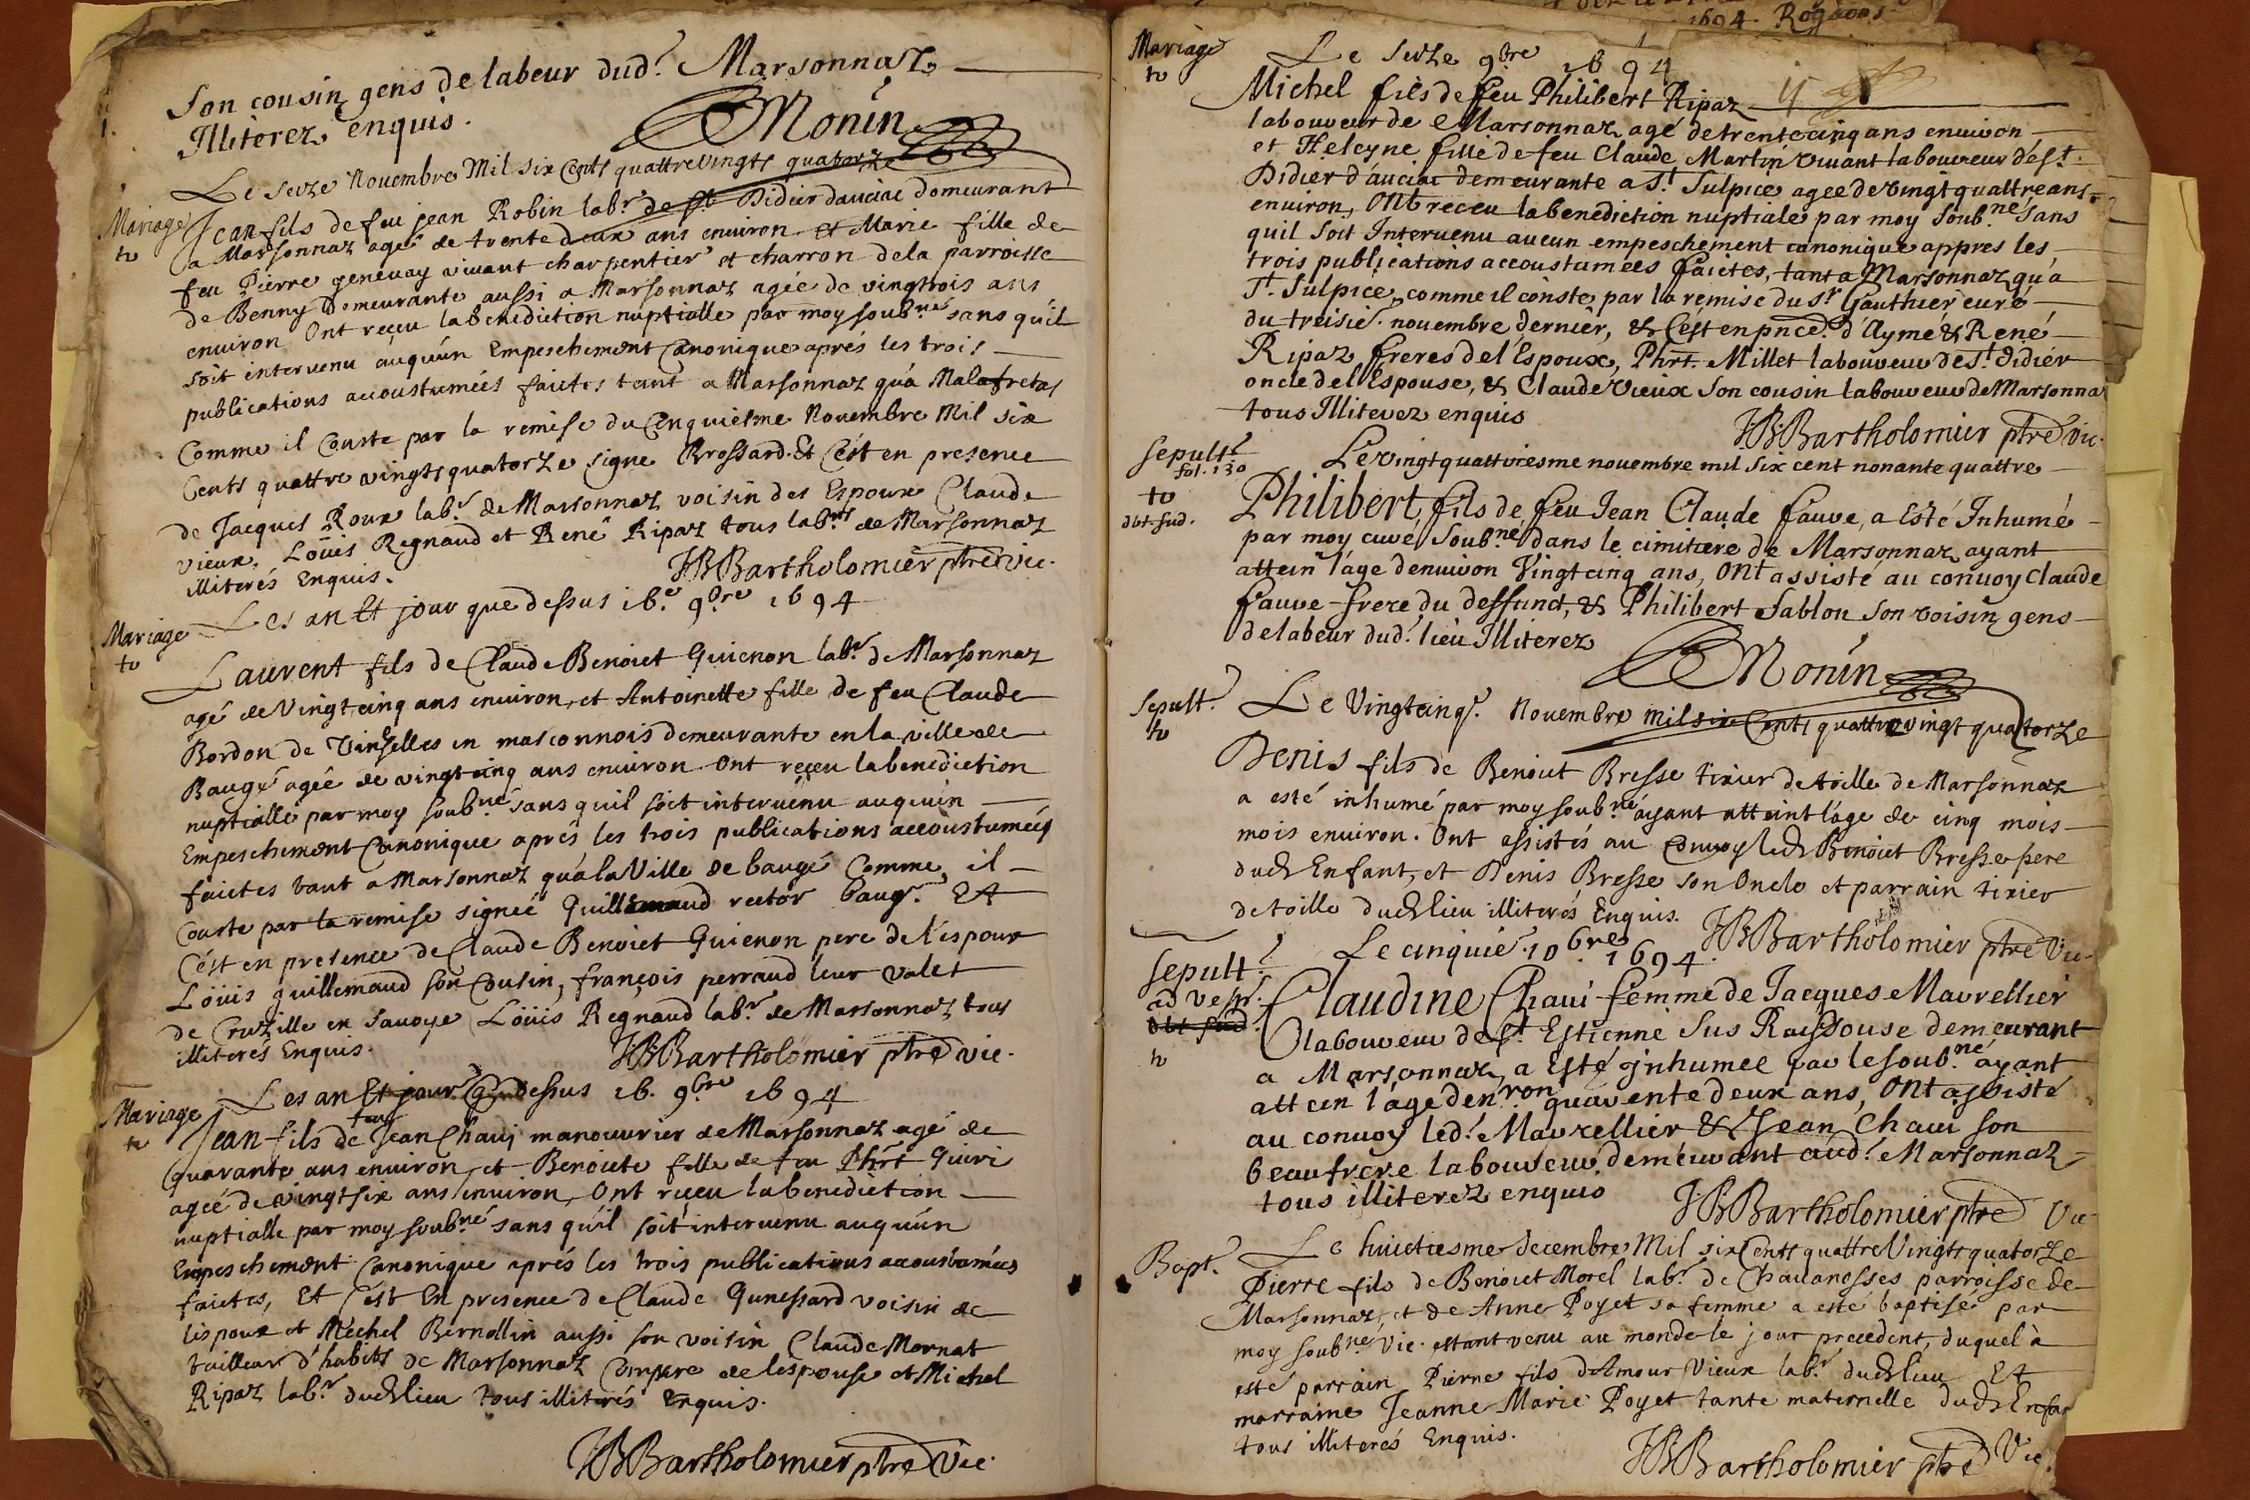 Son cousin gens de labeur dud.t Marsonnaz
Illiterez enquis.
Monin
Le seize Novembre Mil six Cents quattre vingts quatorze
Mariage
Jean fils de feu jean Robin lab.r de st Didier dauciac demeurant
a Marsonnaz agé de trente deux ans environ et Marie fille de
feu Pierre genevay vivant charpentier et charron de la parroisse
de Benny Demeurante aussi a Marsonnaz agée de vingtrois ans
environ Ont reçeu la benediction nuptialle par moy soub.né sans qu'il
soit intervenu auquún Empeschement Canonique aprés les trois
publications accoustumées faictes tant a Marsonnaz qu'a Malafretaz
Comme il Conste par la remise du Cinquiesme Novembre Mil six
Cents quattre vingts quatorze signe Brossard. Et C'ést en presence
de Jacques Roux lab.r de Marsonnaz voisin des Espoux Claude
vieux, Loüis Regnaud et René Ripaz tous lab.rs de Marsonnaz
illiterés Enquis.
JBBartholomier ptre vic.
Les an Et jour que dessus 16.e 9.bre 1694
Mariage
Laurent fils de Claude Benoiet Guienon lab.r de Marsonnaz
agé de Vingt cinq ans environ, et Antoinette fille de feu Claude
Bordon de Vinzelles en masconnois demeurante en la ville de
Baugé agée de vingt cinq ans environ Ont reçeu la benediction
nuptialle par moy soub.né sans qu'il soit intervenu auquún
Empeschement Canonique aprés les trois publications accoustumées
faictes tant a Marsonnaz qu'a la Ville de baugé Comme, il
Conste par la remise signée Guillemaud rector baug.
Et
C'ést en presence de Claude Benoiet Guienon pere de l'espoux
Loüis guillemaud son Cousin, françois perraud leur valet
de Cruzille en Savoye Loüis Regnaud lab.r de Marsonnaz tous
illiterés Enquis.
JBBartholomier ptre vic.
Les an Et jour Que dessus 16. 9.bre 1694
Mariage
feu
Jean fils de Jean Chavi manouvrier de Marsonnaz agé de
Quarante ans environ, et Benoiete fille de feu Phrt Guiri
agée de vingt six ans environ, Ont reçeu la benediction
nuptialle par moy soub.né sans qu'il soit intervenu auquún
Empeschement Canonique aprés les trois publications accoustumées
faictes, Et C'ést En presence de Claude Gunessard voisin de
l'espoux et Mechel Bernollin aussi son voisin Claude Mornat
tailleur d'habits de Marsonnaz Compere de l'espouse et Michel
Ripaz lab.r dud lieu tous illiterés Enquis.
JBBartholomier ptre Vic.
1694. Rogaons
Mariage
Le seize 9bre 1694
Michel fils de feu Philibert Ripaz
laboureur de Marsonnaz agé de trente cinq ans environ
et Heleyne fille de feu Claude Martin vivant laboureur de st.
Didier d'auciac demeurante a St Sulpice agee de vingt quattre ans
environ, Ont receu la benediction nuptiale par moy soub.né sans
quil soit Intervenu aucun empeschement canonique appres les
trois publications accoustumees faictes, tant a Marsonnaz qu'a
St. Sulpice, comme il conste par la remise du Sr Gauthier curé
du treisié. novembre dernier, & C'est en pnce d'Aymé & René
Ripaz freres de l'Espoux, Phrt. Millet laboureur de St didier
oncle de l'Espouse, & Claude Vieux son cousin laboureur de Marsonnaz
tous Illiterez enquis
JBBartholomier ptre vic.
Sepult.e
fol. 130
dbt. sud.
Le vingt quattriesme novembre mil six cent nonante quattre
Philibert fils de feu Jean Claude fauve, a Esté Inhumé
par moy curé soub.né dans le cimitiere de Marsonnaz ayant
attein l'age denviron Vingt cinq ans, Ont assisté au convoy Claude
fauve frere du deffunct, & Philibert Sablon son voisin gens
de labeur dud. lieu Illiterez
Monin
Sepult.
Le Vingt cinq.e Novembre mil six Cents quattre vingt quatorze
Denis fils de Benoiet Bresse tixier de toille de Marsonnaz
a esté inhumé par moy soub.né ayant atteint l'age de cinq mois
mois environ. Ont assistés au Convoy led Benoiet Bresse pere
dud Enfant, et Denis Bresse son Oncle et parrain tixier
de toille dud lieu illiterés Enquis.
JBBartholomier ptre Vic.
Sepult.e
ad vesp.
dbt sud
Le cinquié. 10.bre 1694.
Claudine Chavi femme de Jacques Mavrellier
laboureur de St Estienne Sus Reissouse demeurant
a Marsonnaz, a Esté jnhumee par le soub.né ayant
attein l'age den.ron quarente deux ans, Ont assisté
au convoy led. Mavrellier & Jean Chavi son
beaufrere laboureur demeurant aud. Marsonnaz
tous illiterez enquis
JBBartholomier ptre Vic
Bapt.
Le huictiesme decembre Mil six Cents quattre Vingts quatorze
Pierre fils de Benoiet Morel lab.r de Chavanosses parroisse de
Marsonnaz, et de Anne Poyet sa femme a esté baptisé par
moy soub.né Vic. estant venu au monde le jour precedent, duquel à
esté parrain Pierre fils d'Amour Vieux lab.r dud lieu Et
marraine Jeanne Marie Poyet tante maternelle dud Enfan
tous illiterés Enquis.
JBBartholomier ptre Vic.